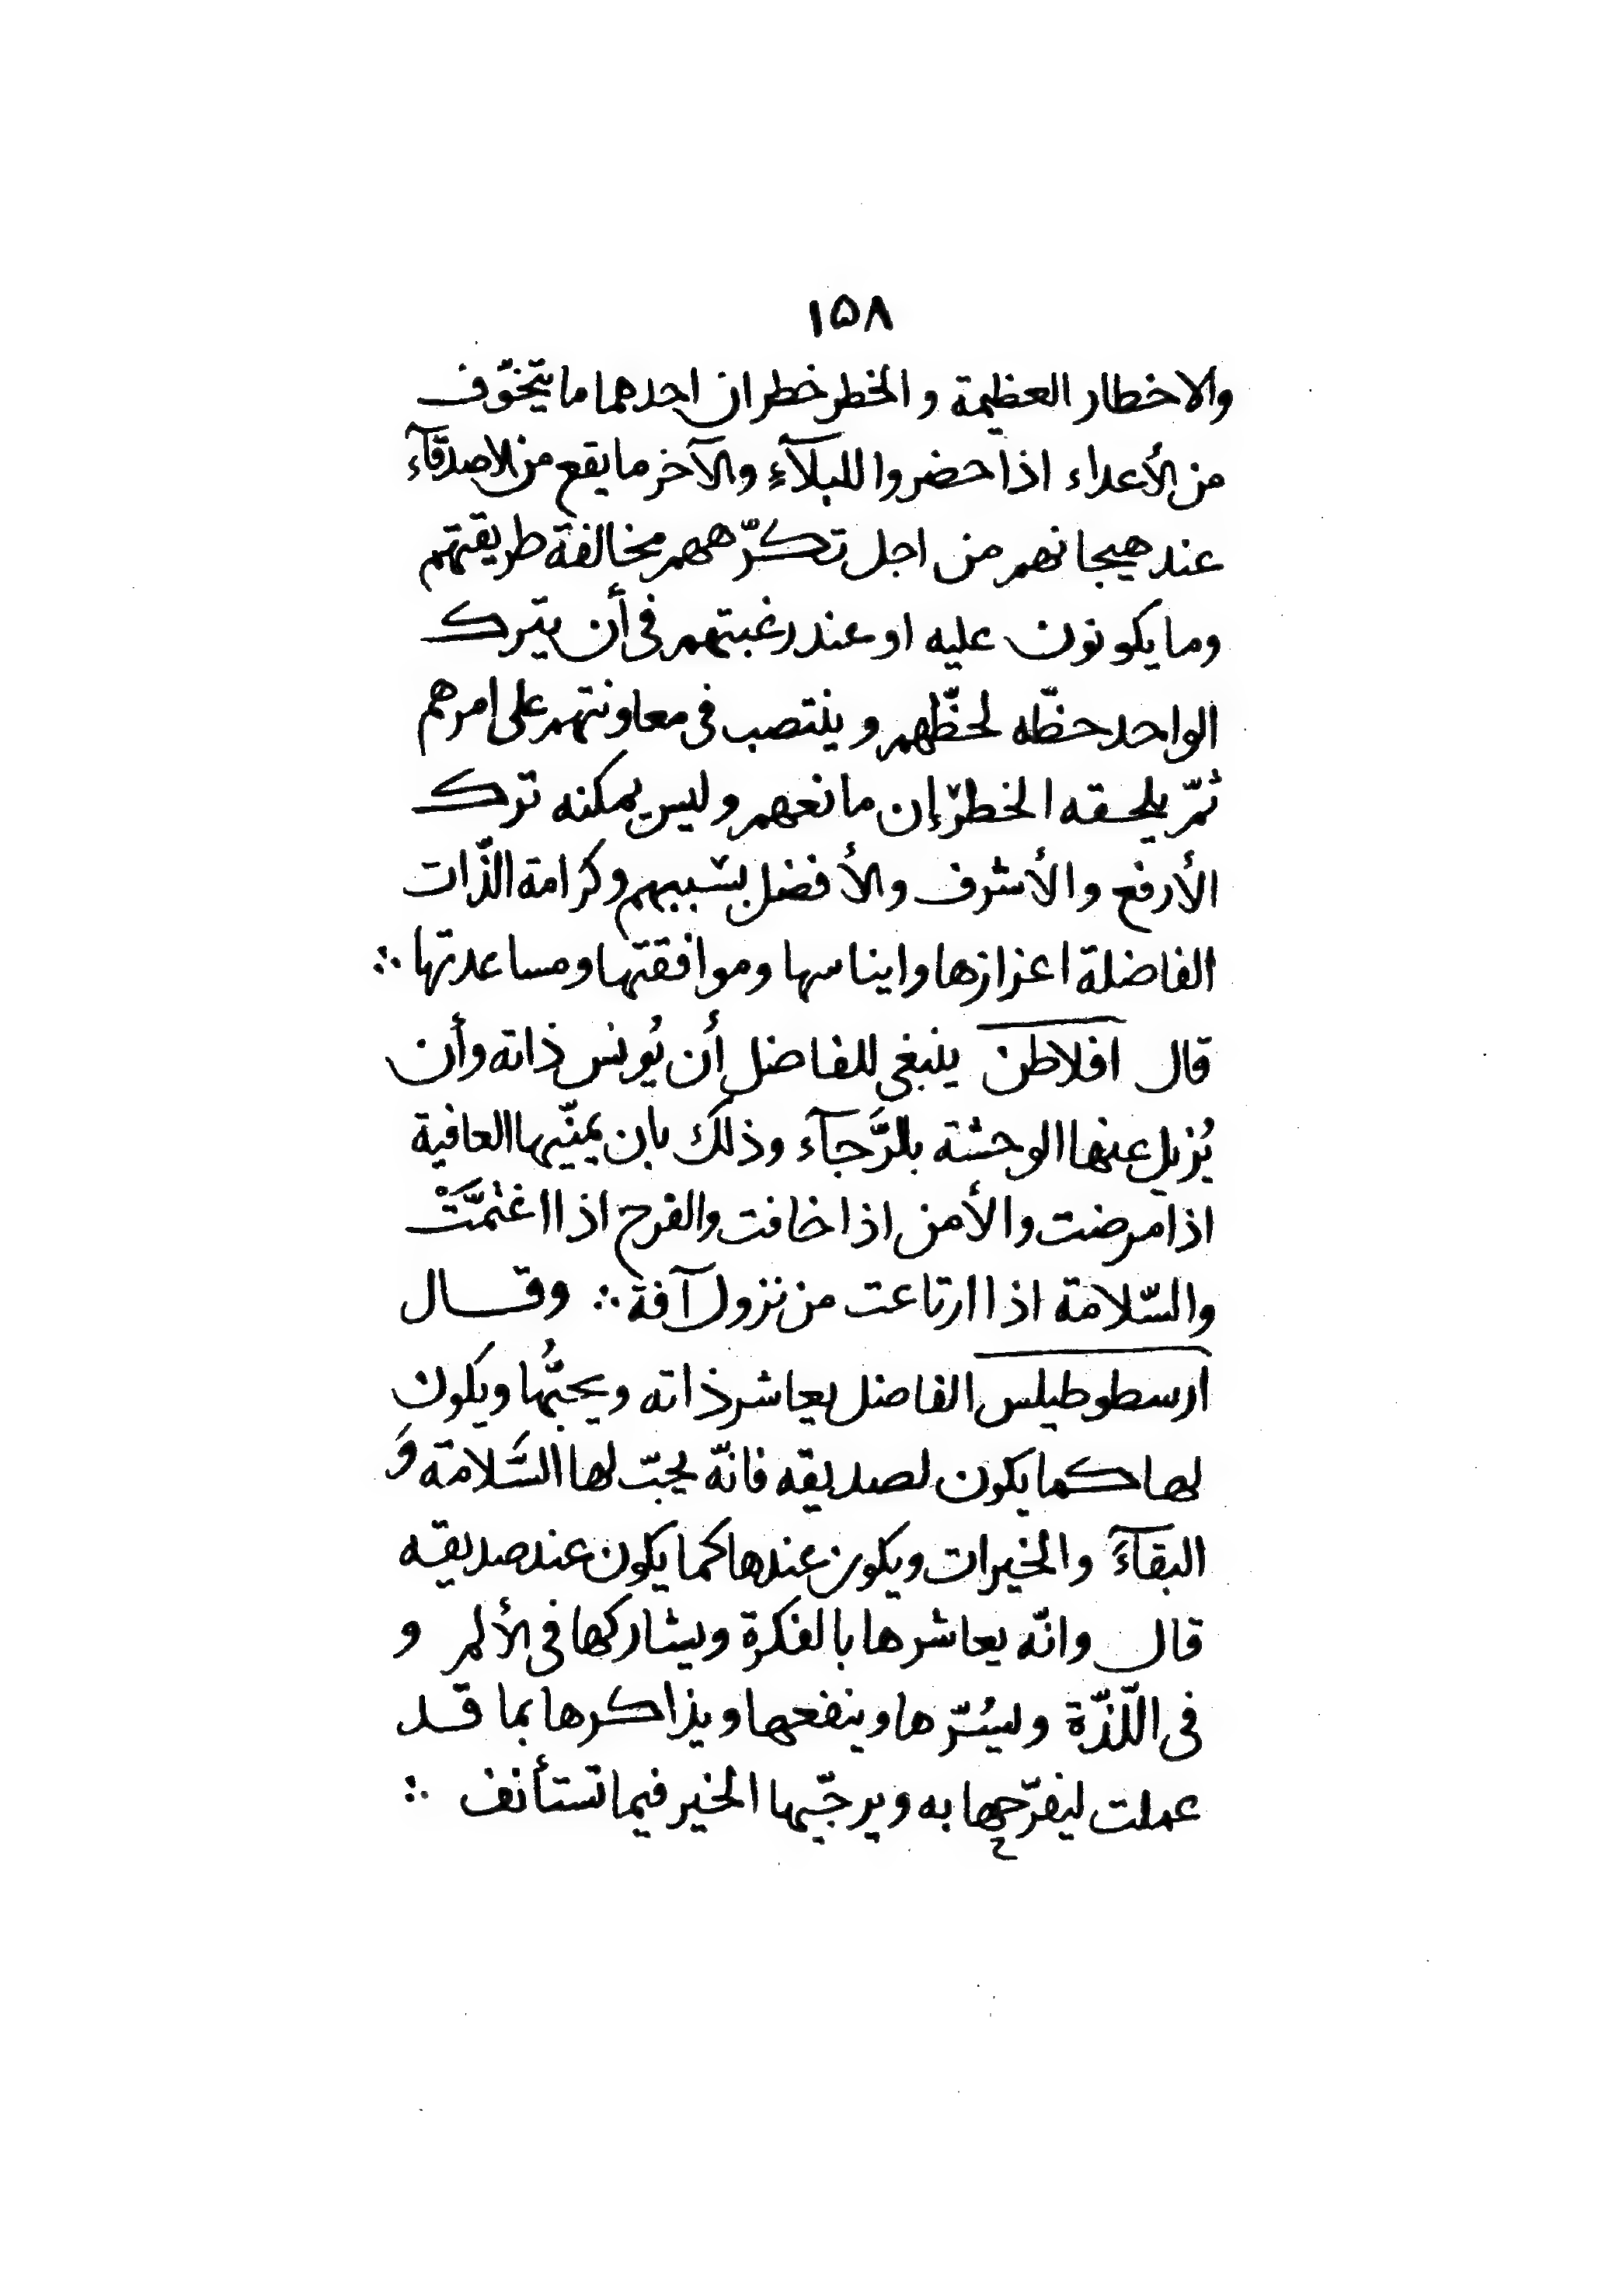 ١٥٨
والاخطار العظيمة والخطر خطران احدهما ما يتخوّف
من الأعداء اذا حضروا للبلآءِ والآخر ما يقع من الاصدقآء
عند هيجانهم من اجل تكرّههم مخالفة طريقتهم
وما يكونون عليه او عند رغبتهم فى أن يترك
الواحد حظّه لحظّهم وينتصب فى معاونتهم على امرهم
ثمّ يلحقه الخطر إن مانعهم وليس يمكنه ترك
الأرفع والأشرف والأفضل بسببهم وكرامة الذّات
الفاضلة اعزازها وايناسها وموافقتها ومساعدتها ∴
قال افلاطن ينبغى للفاضل أن يُونس ذاته وأن
يُزيل عنها الوحشة بالرَّجآء وذلك بان يمنّيها العافية
اذا مرضت والأمن اذا خافت والفرح اذا اغتمَّتْ
والسّلامة اذا ارتاعت من نزول آفة ∴ وقال
ارسطوطيلس الفاضل يعاشر ذاته ويحبُّها ويكون
لها كما يكون لصديقه فانّه يحبّ لها السَّلامة وَ
البقآءَ والخيرات ويكون عندها كما يكون عند صديقه
قال وانّه يعاشرها بالفكرة ويشاركها فى الألم و
فى اللّذّة ويسُرّها وينفعها ويذاكرها بما قد
عملت ليفرّحها به ويرجّيها الخير فيما تستأنف ∴